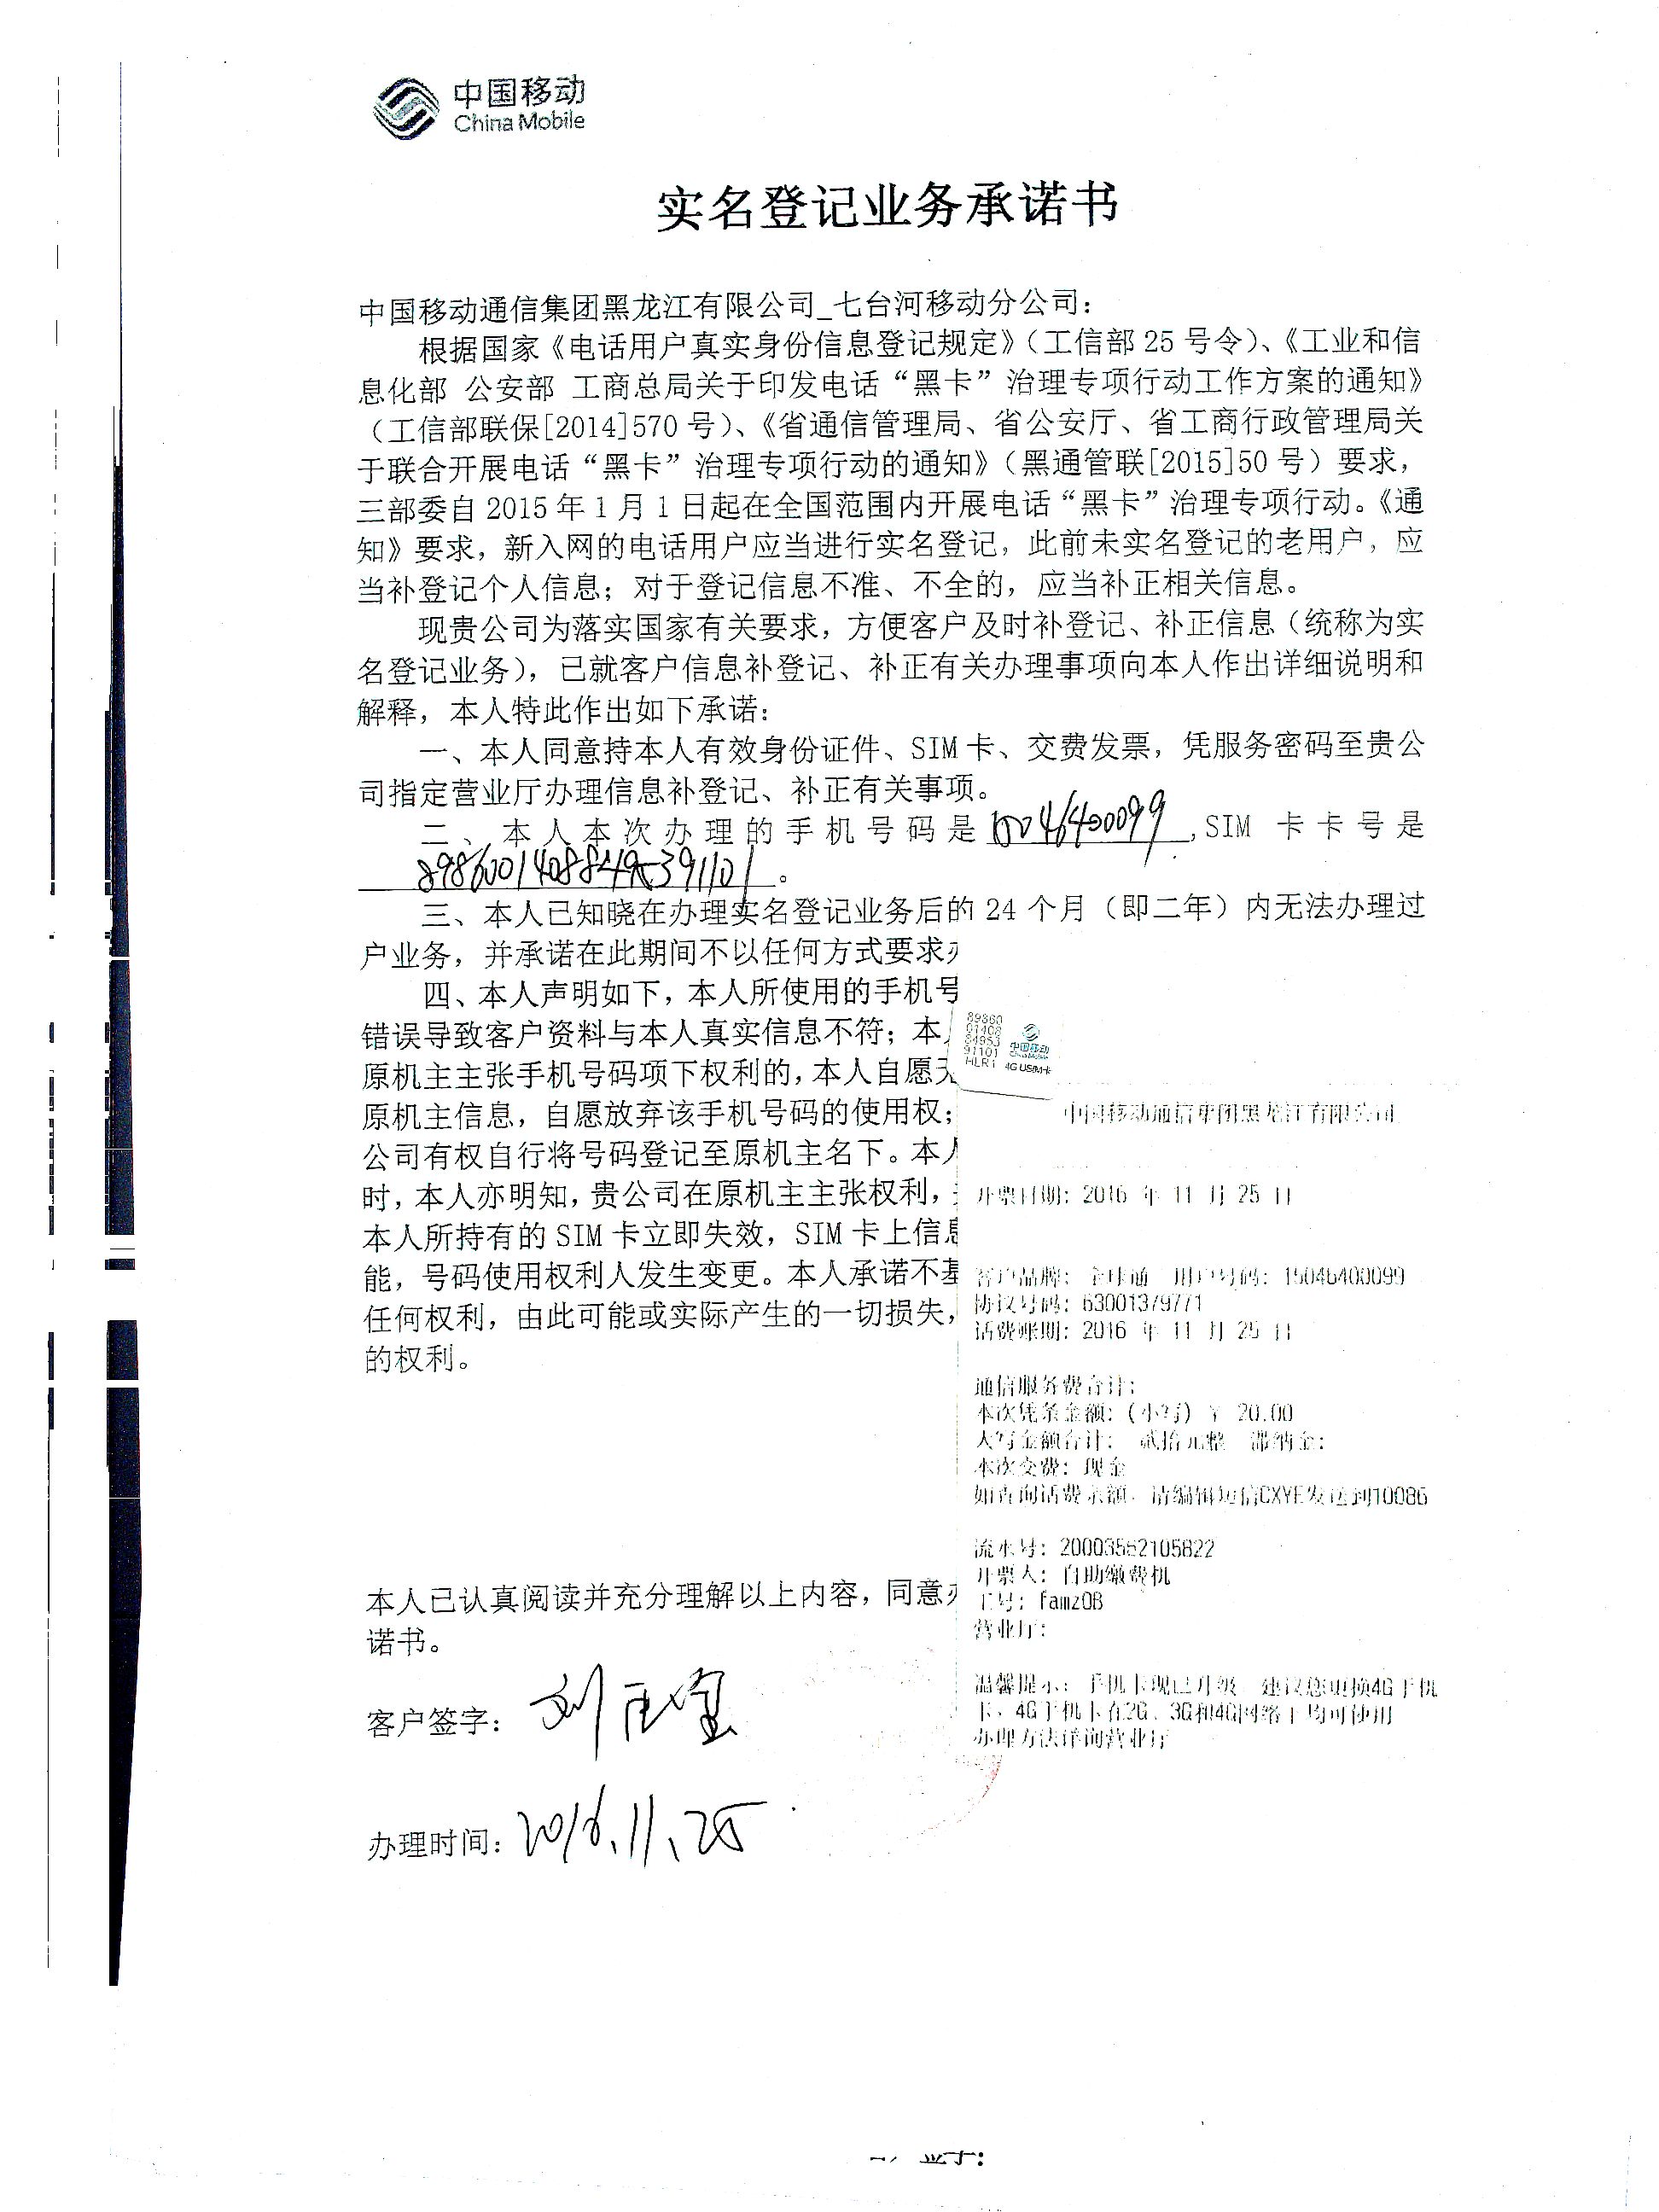 中国移动
China Mobile
实名登记业务承诺书
中国移动通信集团黑龙江有限公司_七台河移动分公司：
根据国家《电话用户真实身份信息登记规定》（工信部 25 号令）、《工业和信
息化部 公安部 工商总局关于印发电话“黑卡”治理专项行动工作方案的通知》
（工信部联保[2014]570 号）、《省通信管理局、省公安厅、省工商行政管理局关
于联合开展电话“黑卡”治理专项行动的通知》（黑通管联[2015]50 号）要求，
三部委自 2015 年 1 月 1 日起在全国范围内开展电话“黑卡”治理专项行动。《通
知》要求，新入网的电话用户应当进行实名登记，此前未实名登记的老用户，应
当补登记个人信息；对于登记信息不准、不全的，应当补正相关信息。
现贵公司为落实国家有关要求，方便客户及时补登记、补正信息（统称为实
名登记业务），已就客户信息补登记、补正有关办理事项向本人作出详细说明和
解释，本人特此作出如下承诺：
一、本人同意持本人有效身份证件、SIM 卡、交费发票，凭服务密码至贵公
司指定营业厅办理信息补登记、补正有关事项。
二、本人本次办理的手机号码是 15046400099 ,SIM 卡卡号是
89860014088495391101。
三、本人已知晓在办理实名登记业务后的 24 个月（即二年）内无法办理过
户业务，并承诺在此期间不以任何方式要求
四、本人声明如下，本人所使用的手机号
错误导致客户资料与本人真实信息不符；本
原机主主张手机号码项下权利的，本人自愿
原机主信息，自愿放弃该手机号码的使用权；
公司有权自行将号码登记至原机主名下。本人
时，本人亦明知，贵公司在原机主主张权利，
本人所持有的 SIM 卡立即失效，SIM 卡上信息
能，号码使用权利人发生变更。本人承诺不基
任何权利，由此可能或实际产生的一切损失，
的权利。
本人已认真阅读并充分理解以上内容，同意
诺书。
客户签字：刘玉
办理时间：2016.11.25
89860
01408
84953
91101
HLR1
中国移动
China Mobile
4G USIM卡
中国移动通信集团黑龙江有限公司
开票日期: 2016 年 11 月 25 日
客户品牌: 全球通 用户号码: 15046400099
协议号码: 63001379771
话费账期: 2016 年 11 月 25 日
通信服务费合计:
本次凭条金额: (小写) ￥ 20.00
大写金额合计: 贰拾元整 滞纳金:
本次交费: 现金
如查询话费余额，请编辑短信CXYE发送到10086
流水号: 20003552105822
开票人: 自助缴费机
工号: famz0B
营业厅:
温馨提示: 手机卡现已升级 建议您更换4G手机
卡，4G手机卡在2G、3G和4G网络下均可使用
办理方法详询营业厅